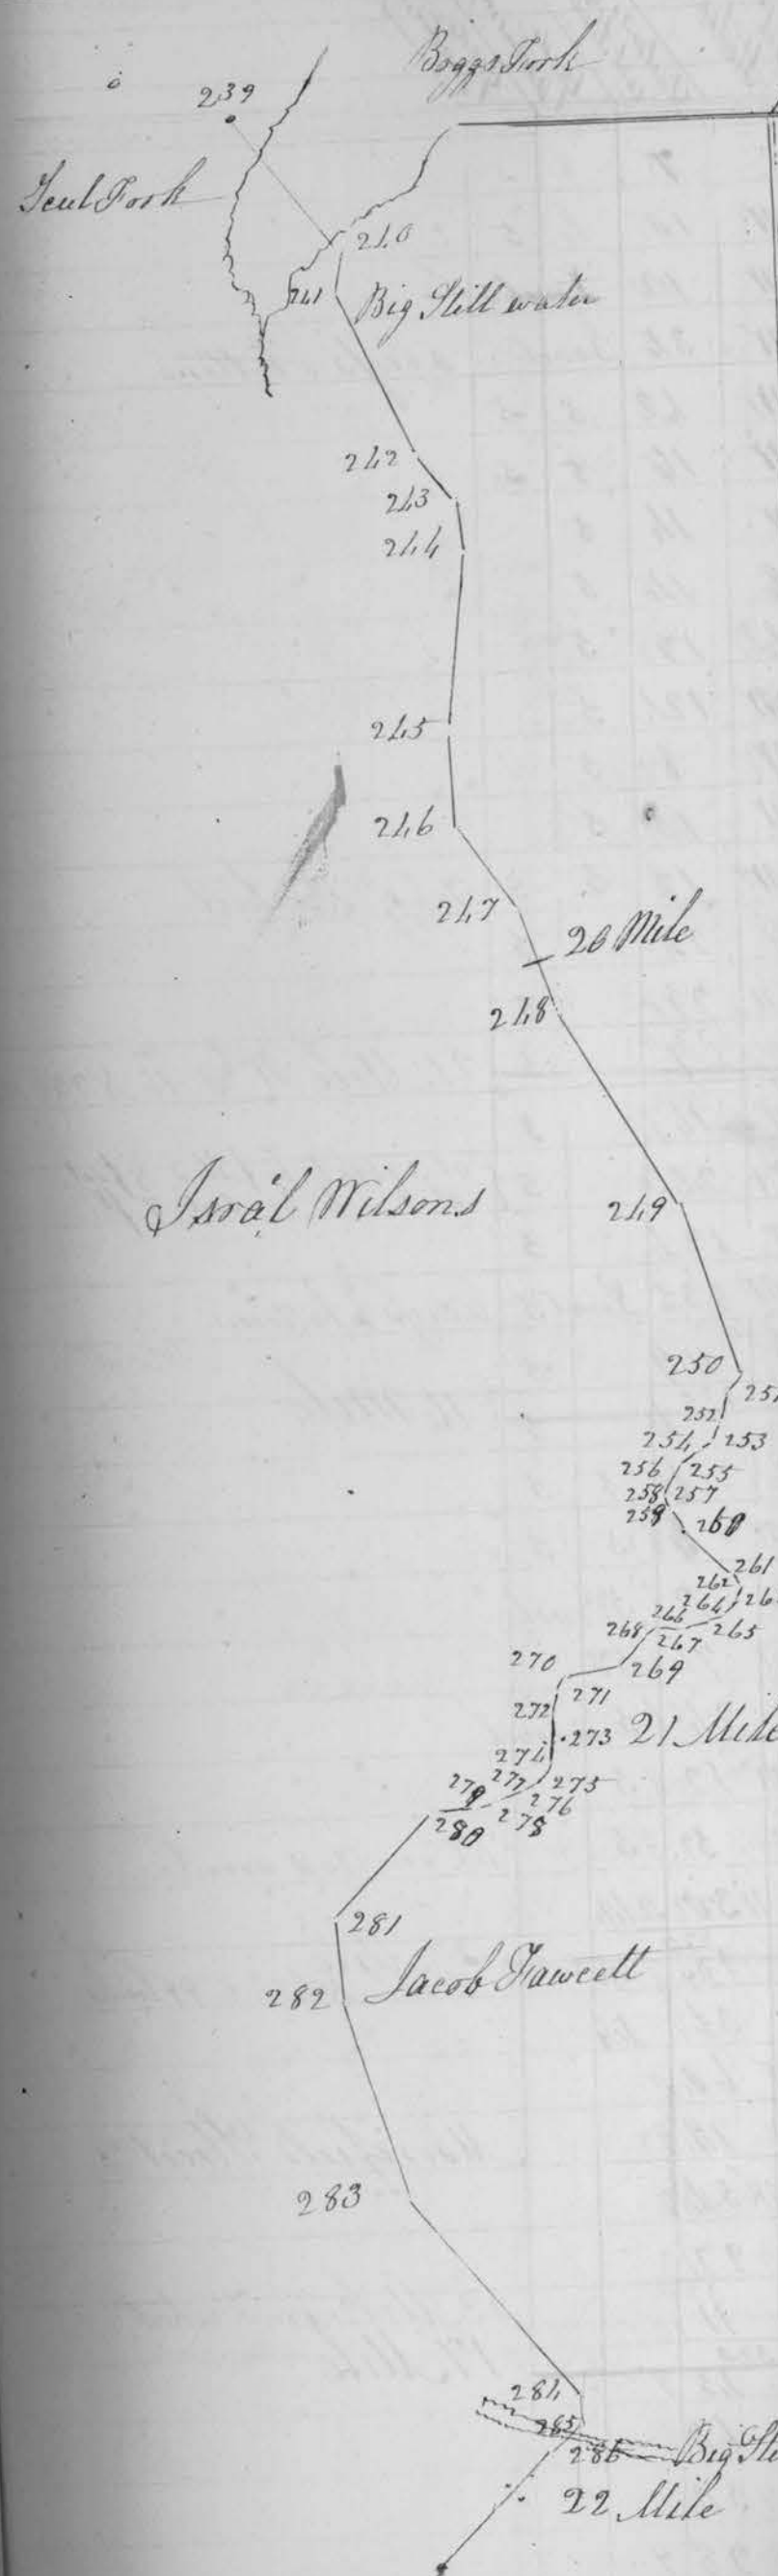 Boggs Fork
239
Fork
240
241
Big Still water
242
243
244
245
246
247
20 Mile
248
Isra'l Wilsons
249
250
251
252
254 253
256 255
258 257
259 260
261
262
264 26
266 265
268 267
270 269
271
272
273 21 Mile
274
277 275
279 276
280 278
281
282 Jacob Fawcett
283
284
285
286 Big
22 Mile